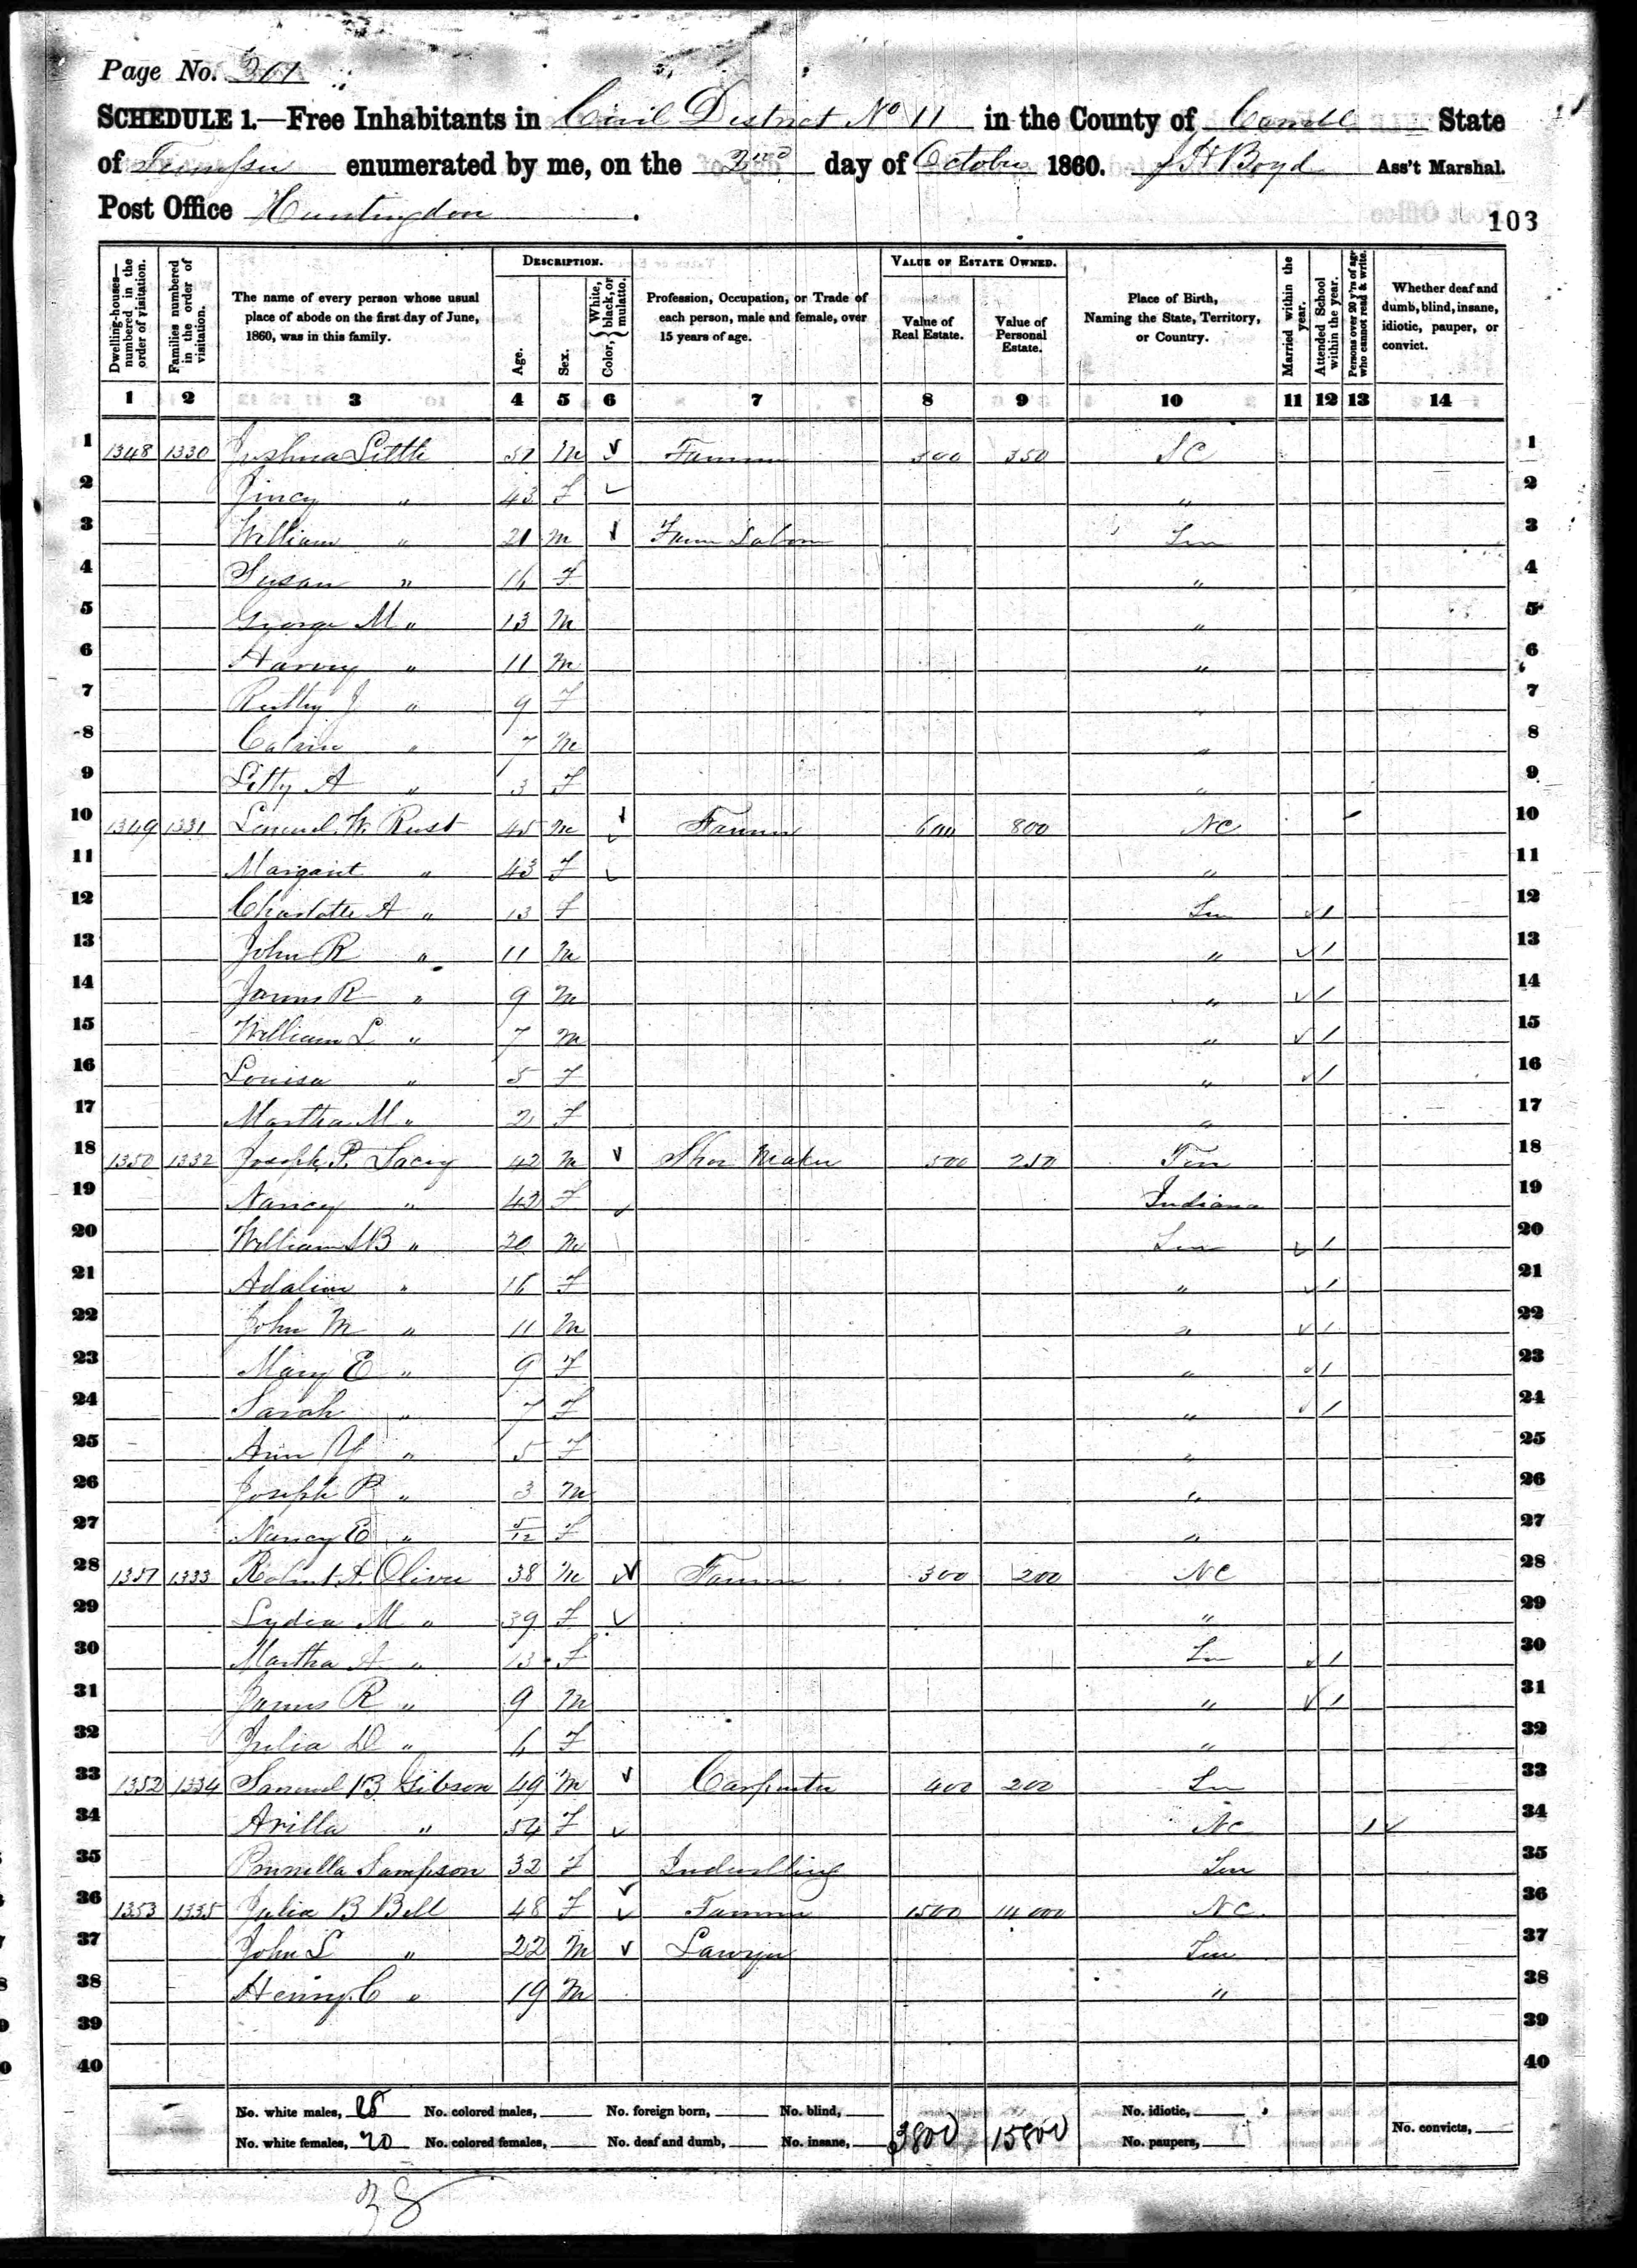 Page No. 301
SCHEDULE 1.—Free Inhabitants in Civil District No 11 in the County of Carroll State
of Tennessee enumerated by me, on the 2nd day of October 1860. Boyd Ass't Marshal.
Post Office Huntingdon
103
Dwelling-houses—numbered in the order of visitation.
Families numbered in the order of visitation.
The name of every person whose usual place of abode on the first day of June, 1860, was in this family.
DESCRIPTION.
Age.
Sex.
Color, { White, black, or mulatto.
Profession, Occupation, or Trade of each person, male and female, over 15 years of age.
VALUE OF ESTATE OWNED.
Value of Real Estate.
Value of Personal Estate.
Place of Birth, Naming the State, Territory, or Country.
Married within the year.
Attended School within the year.
Persons over 20 y'rs of age who cannot read & write.
Whether deaf and dumb, blind, insane, idiotic, pauper, or convict.
1 2 3 4 5 6 7 8 9 10 11 12 13 14
1 1348 1330 Joshua Little 51 M Farmer 300 350 1
2 Jincy " 43 F " 2
3 William " 21 M Farm Labor Ten 3
4 Susan " 16 F " 4
5 George M " 13 M " 5
6 Harvey " 11 M " 6
7 J " 9 F " 7
8 Calvin " 7 M " 8
9 A " 3 F " 9
10 1349 1331 Lemuel W. Rust 45 M Farmer 600 800 NC 10
11 Margaret " 43 F " 11
12 Charlotte A " 13 F Ten / 12
13 John R " 11 M " / 13
14 James R " 9 M " / 14
15 William L " 7 M " / 15
16 Louisa " 5 F " / 16
17 Martha M " 2 F " 17
18 1350 1332 Joseph P. Lacey 42 M Shoe Maker 500 250 Ten 18
19 Nancy " 42 F Indiana 19
20 William B " 20 M Ten / 20
21 Adaline " 16 F " / 21
22 John M " 11 M " / 22
23 Mary E " 9 F " / 23
24 Sarah " 7 F " / 24
25 Ann " 5 F " 25
26 Joseph P " 3 M " 26
27 Nancy E " 5/12 F " 27
28 1351 1333 Robert A. Oliver 38 M Farmer 300 200 NC 28
29 Lydia M " 39 F " 29
30 Martha A " 13 F Ten / 30
31 James R " 9 M " / 31
32 Julia D " 6 F " 32
33 1352 1334 Samuel B Gibson 49 M Carpenter 400 200 Ten 33
34 Arilla " 54 F NC / 34
35 Prunella Sampson 32 F Indwelling Ten 35
36 1353 1335 Julia B Bell 48 F Farmer 1500 14000 NC 36
37 John L " 22 M Lawyer Ten 37
38 Henry C " 19 M " 38
39 39
40 40
No. white males, 18 No. colored males, No. foreign born, No. blind, No. idiotic,
No. white females, 20 No. colored females, No. deaf and dumb, No. insane, 3800 15800 No. paupers, No. convicts,
38